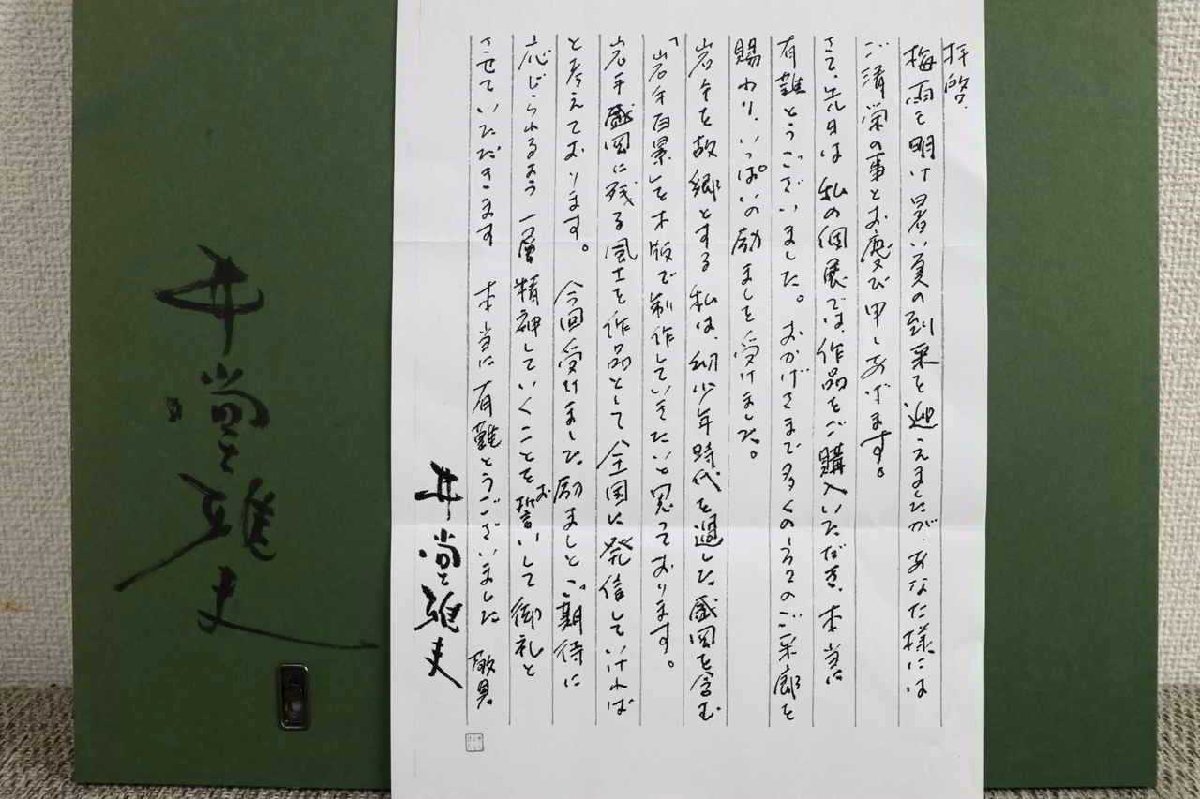 拝啓、
梅雨も明け暑い夏の到来を迎えましたが あなた様には
ご清栄の事とお慶び申しあげます。
さて、先日は私の個展では、作品をご購入いただき、本当に
有難とうございました。おかげさまで多くの方々のご来廊を
賜わり、いっぱいの励ましを受けました。
岩手を故郷とする私は、幼少年時代を過した盛岡を含む
「岩手百景」を木版で制作していきたいと思っております。
岩手盛岡に残る風土を作品として全国に発信していければ
と考えております。 今回受けました励ましとご期待に
応じられるよう一層精神していくことをお誓いして御礼と
させていただきます 本当に有難とうございました 敬具
井堂雅夫
井堂雅夫